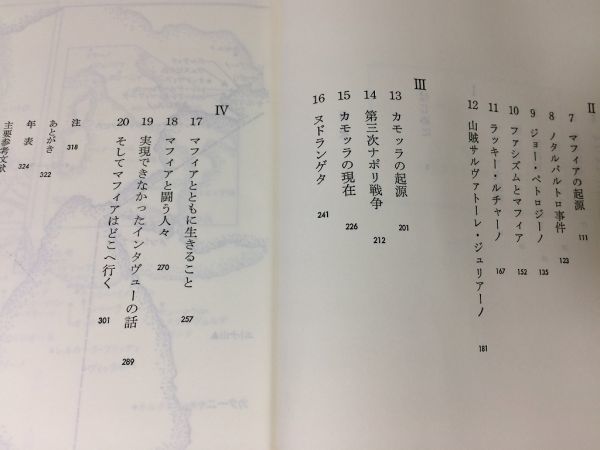 II
7 マフィアの起源 111
8 ノタルバルトロ事件 123
9 ジョー・ペトロジーノ 135
10 ファシズムとマフィア 152
11 ラッキー・ルチャーノ 167
12 山賊サルヴァトーレ・ジュリアーノ 181
III
13 カモッラの起源 201
14 第三次ナポリ戦争 212
15 カモッラの現在 226
16 ヌドランゲタ 241
IV
17 マフィアとともに生きること 257
18 マフィアと闘う人々 270
19 実現できなかったインタヴューの話 289
20 そしてマフィアはどこへ行く 301
注 318
あとがき 322
年表 324
主要参考文献